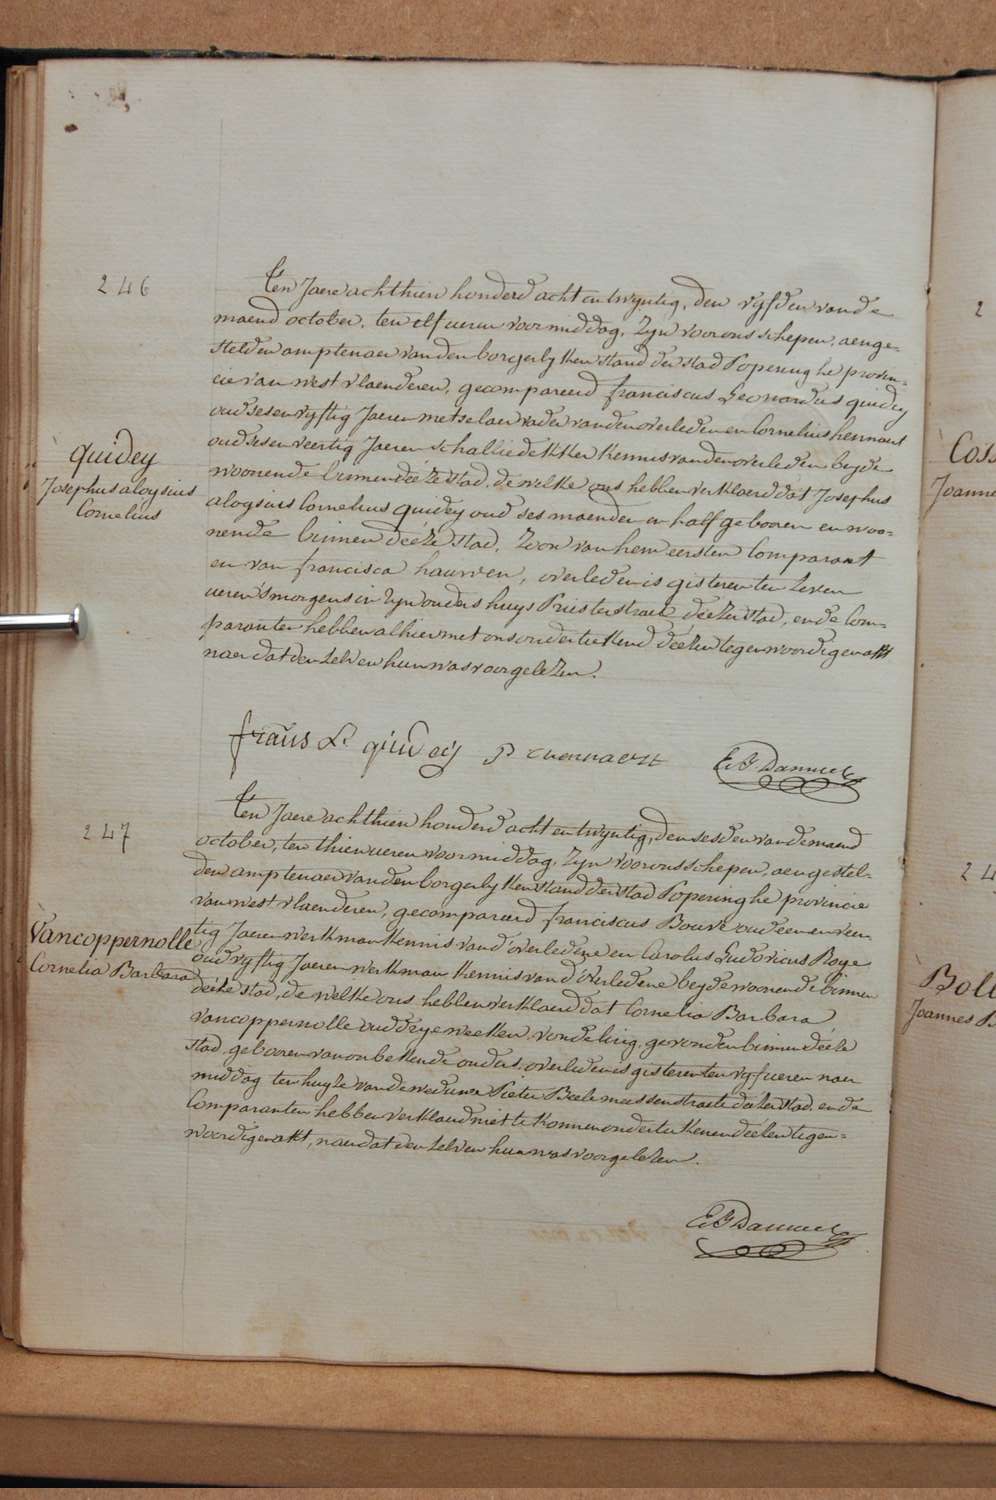 246
Ten Jaere achthien honderd acht en twyntig, den vyfden van de
maend october, ten elf ueren voormiddag, Zyn voor ons schepen, aenge-
stelden amptenaer van den borgerlyken stand der stad Poperinghe provin-
cie van westvlaenderen, gecompareerd franciscus Leonardus quidey
oud ses en vyftig Jaeren metselaer vader van den overleden en Cornelius hennaert
oud ses en veertig Jaeren schalliedekker kennis van den overleden beyde
woonende binnen déeze stad, de welke ons hebben verklaerd dat Josephus
aloysius Cornelius quidey oud ses maenden en half gebooren en woo-
nende binnen déeze stad, Zoon van hem eersten Comparant
en van francisca hauwen, overleden is gisteren ten zeven
ueren 's morgens in zyn ouders huys Priesterstraete déezer stad, en de Com-
paranten hebben alhier met ons onderteekend déezen tegenwoordigen akt
naer dat den zelven hun was voorgelezen.
quidey
Josephus aloysius
Cornelius
frans L. quidey
E J Danneel
247
Ten Jaere achthien honderd acht en twyntig, den sesden van de maend
october, ten thien ueren voormiddag, Zyn voor ons schepen, aengestel-
den amptenaer van den borgerlyken stand der stad Poperinghe provincie
van westvlaenderen, gecompareerd franciscus Bouve oud een en veer-
tig Jaeren werkman kennis van d'overledene en Carolus Ludovicus Roye
oud vyftig Jaeren werkman kennis van d'overledene beyde woonende binnen
déeze stad, de welke ons hebben verklaerd dat Cornelia Barbara
vancoppernolle oud dry weeken, vondeling, gevonden binnen déeze
stad, gebooren van onbekende ouders, overleden is gisteren ten vyf ueren naer
middag ten huyze van de weduwe Pieter Beele meessenstraete dézer stad, en de
Comparanten hebben verklaerd niet te konnen onderteekenen déezen tegen-
woordigen akt, naer dat den zelven hun was voorgelezen.
Vancoppernolle
Cornelia Barbara
E J Danneel
2
Coss
Joanne
24
Boll
Joannes B